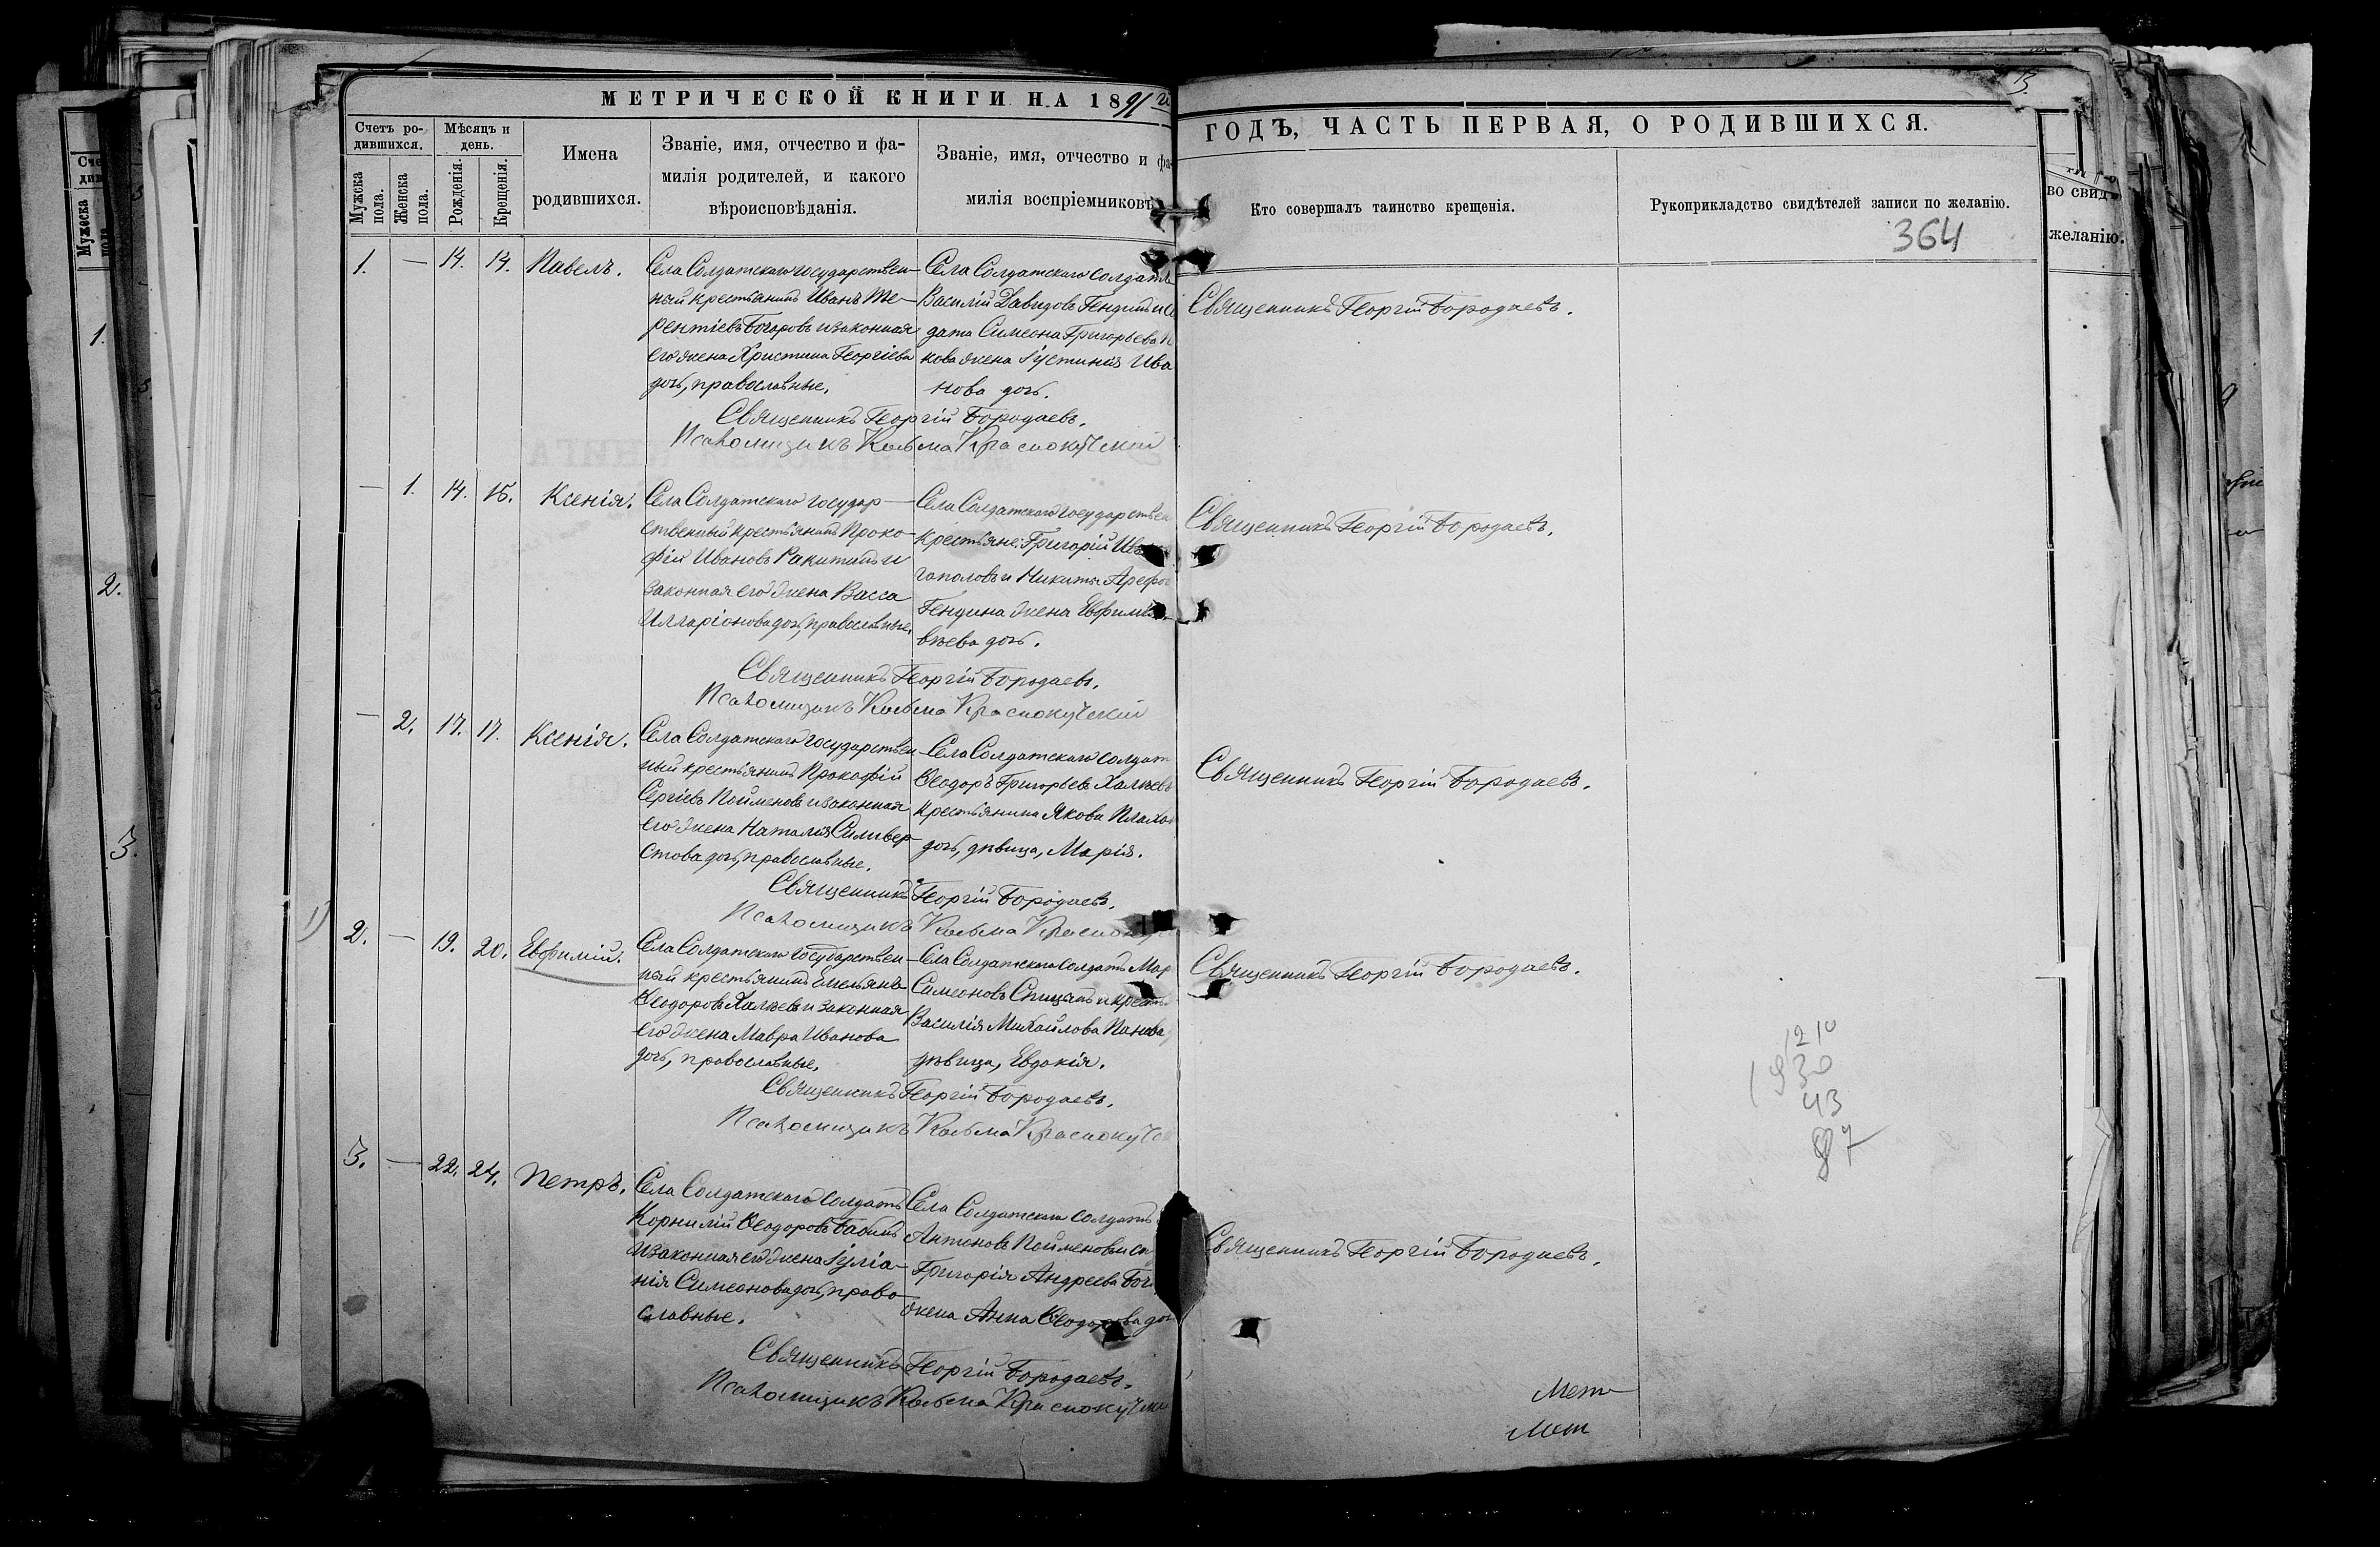 МЕТРИЧЕСКОЙ КНИГИ НА 1891 г
ГОДЪ, ЧАСТЬ ПЕРВАЯ, О РОДИВШИХСЯ.
Счетъ ро-
дившихся.
Мужска
пола.
Женска
пола.
Мѣсяцъ и
день.
Рожденія.
Крещенія.
Имена
родившихся.
Званіе, имя, отчество и фа-
милія родителей, и какого
вѣроисповѣданія.
Званіе, имя, отчество и фа-
милія воспріемниковъ
Кто совершалъ таинство крещенія.
Рукоприкладство свидѣтелей записи по желанію.
364
1. — 14. 14. Павелъ.
Села Солдатскаго государствен-
ный крестьянинъ Иванъ Те-
рентіевъ Бочаровъ и законная
его жена Христина Георгіева
дочь, православные.
Села Солдатскаго солдатъ
Василій Давидовъ Гендинъ и со
дата Симеона Григорьева
кова жена Іустинія Ива
нова дочь.
Священникъ Георгій Бородаевъ.
Священникъ Георгій Бородаевъ.
Псаломщикъ Косьма Краснокутскій
— 1. 14. 15. Ксенія.
Села Солдатскаго государ-
ственный крестьянинъ Проко-
фій Ивановъ Ракитинъ и
законная его жена Васса
Илларіонова дочь, православные.
Села Солдатскаго государствен
крестьяне: Григорій Ив
гаполовъ и Никиты Арефье
Гендина жена Евфимія
вѣева дочь.
Священникъ Георгій Бородаевъ.
Священникъ Георгій Бородаевъ.
Псаломщикъ Косьма Краснокутскій
— 2. 17. 17. Ксенія.
Села Солдатскаго государствен
ный крестьянинъ Прокофій
Сергіевъ Пойменовъ и законная
его жена Наталія Сильвер-
стова дочь, православные.
Села Солдатскаго солдат
Ѳеодоръ Григорьевъ Халѣевъ
крестьянина Якова
дочь, дѣвица, Марія.
Священникъ Георгій Бородаевъ.
Священникъ Георгій Бородаевъ.
Псаломщикъ Косьма Красноку
2. — 19. 20. Евфимій.
Села Солдатскаго государствен-
ный крестьянинъ Емельянъ
Ѳеодоровъ Халѣевъ и законная
его жена Мавра Иванова
дочь, православные.
Села Солдатскаго солдатъ Мар
Симеоновъ Спицынъ и крестья
Василія Михайлова Панова
дѣвица, Евдокія.
Священникъ Георгій Бородаевъ.
Священникъ Георгій Бородаевъ.
Псаломщикъ Косьма Краснокутск
1210
1930
43
87
3. — 22. 24. Петръ.
Села Солдатскаго солдатъ
Корнилій Ѳеодоровъ Бабинъ
и законная его жена Іуліа-
нія Симеонова дочь, право-
славные.
Села Солдатскаго солдатъ
Антоновъ Пойменовъ и со
Григорія Андреева Боч
жена Анна Ѳеодорова доч
Священникъ Георгій Бородаевъ.
Священникъ Георгій Бородаевъ.
Псаломщикъ Косьма Краснокутски